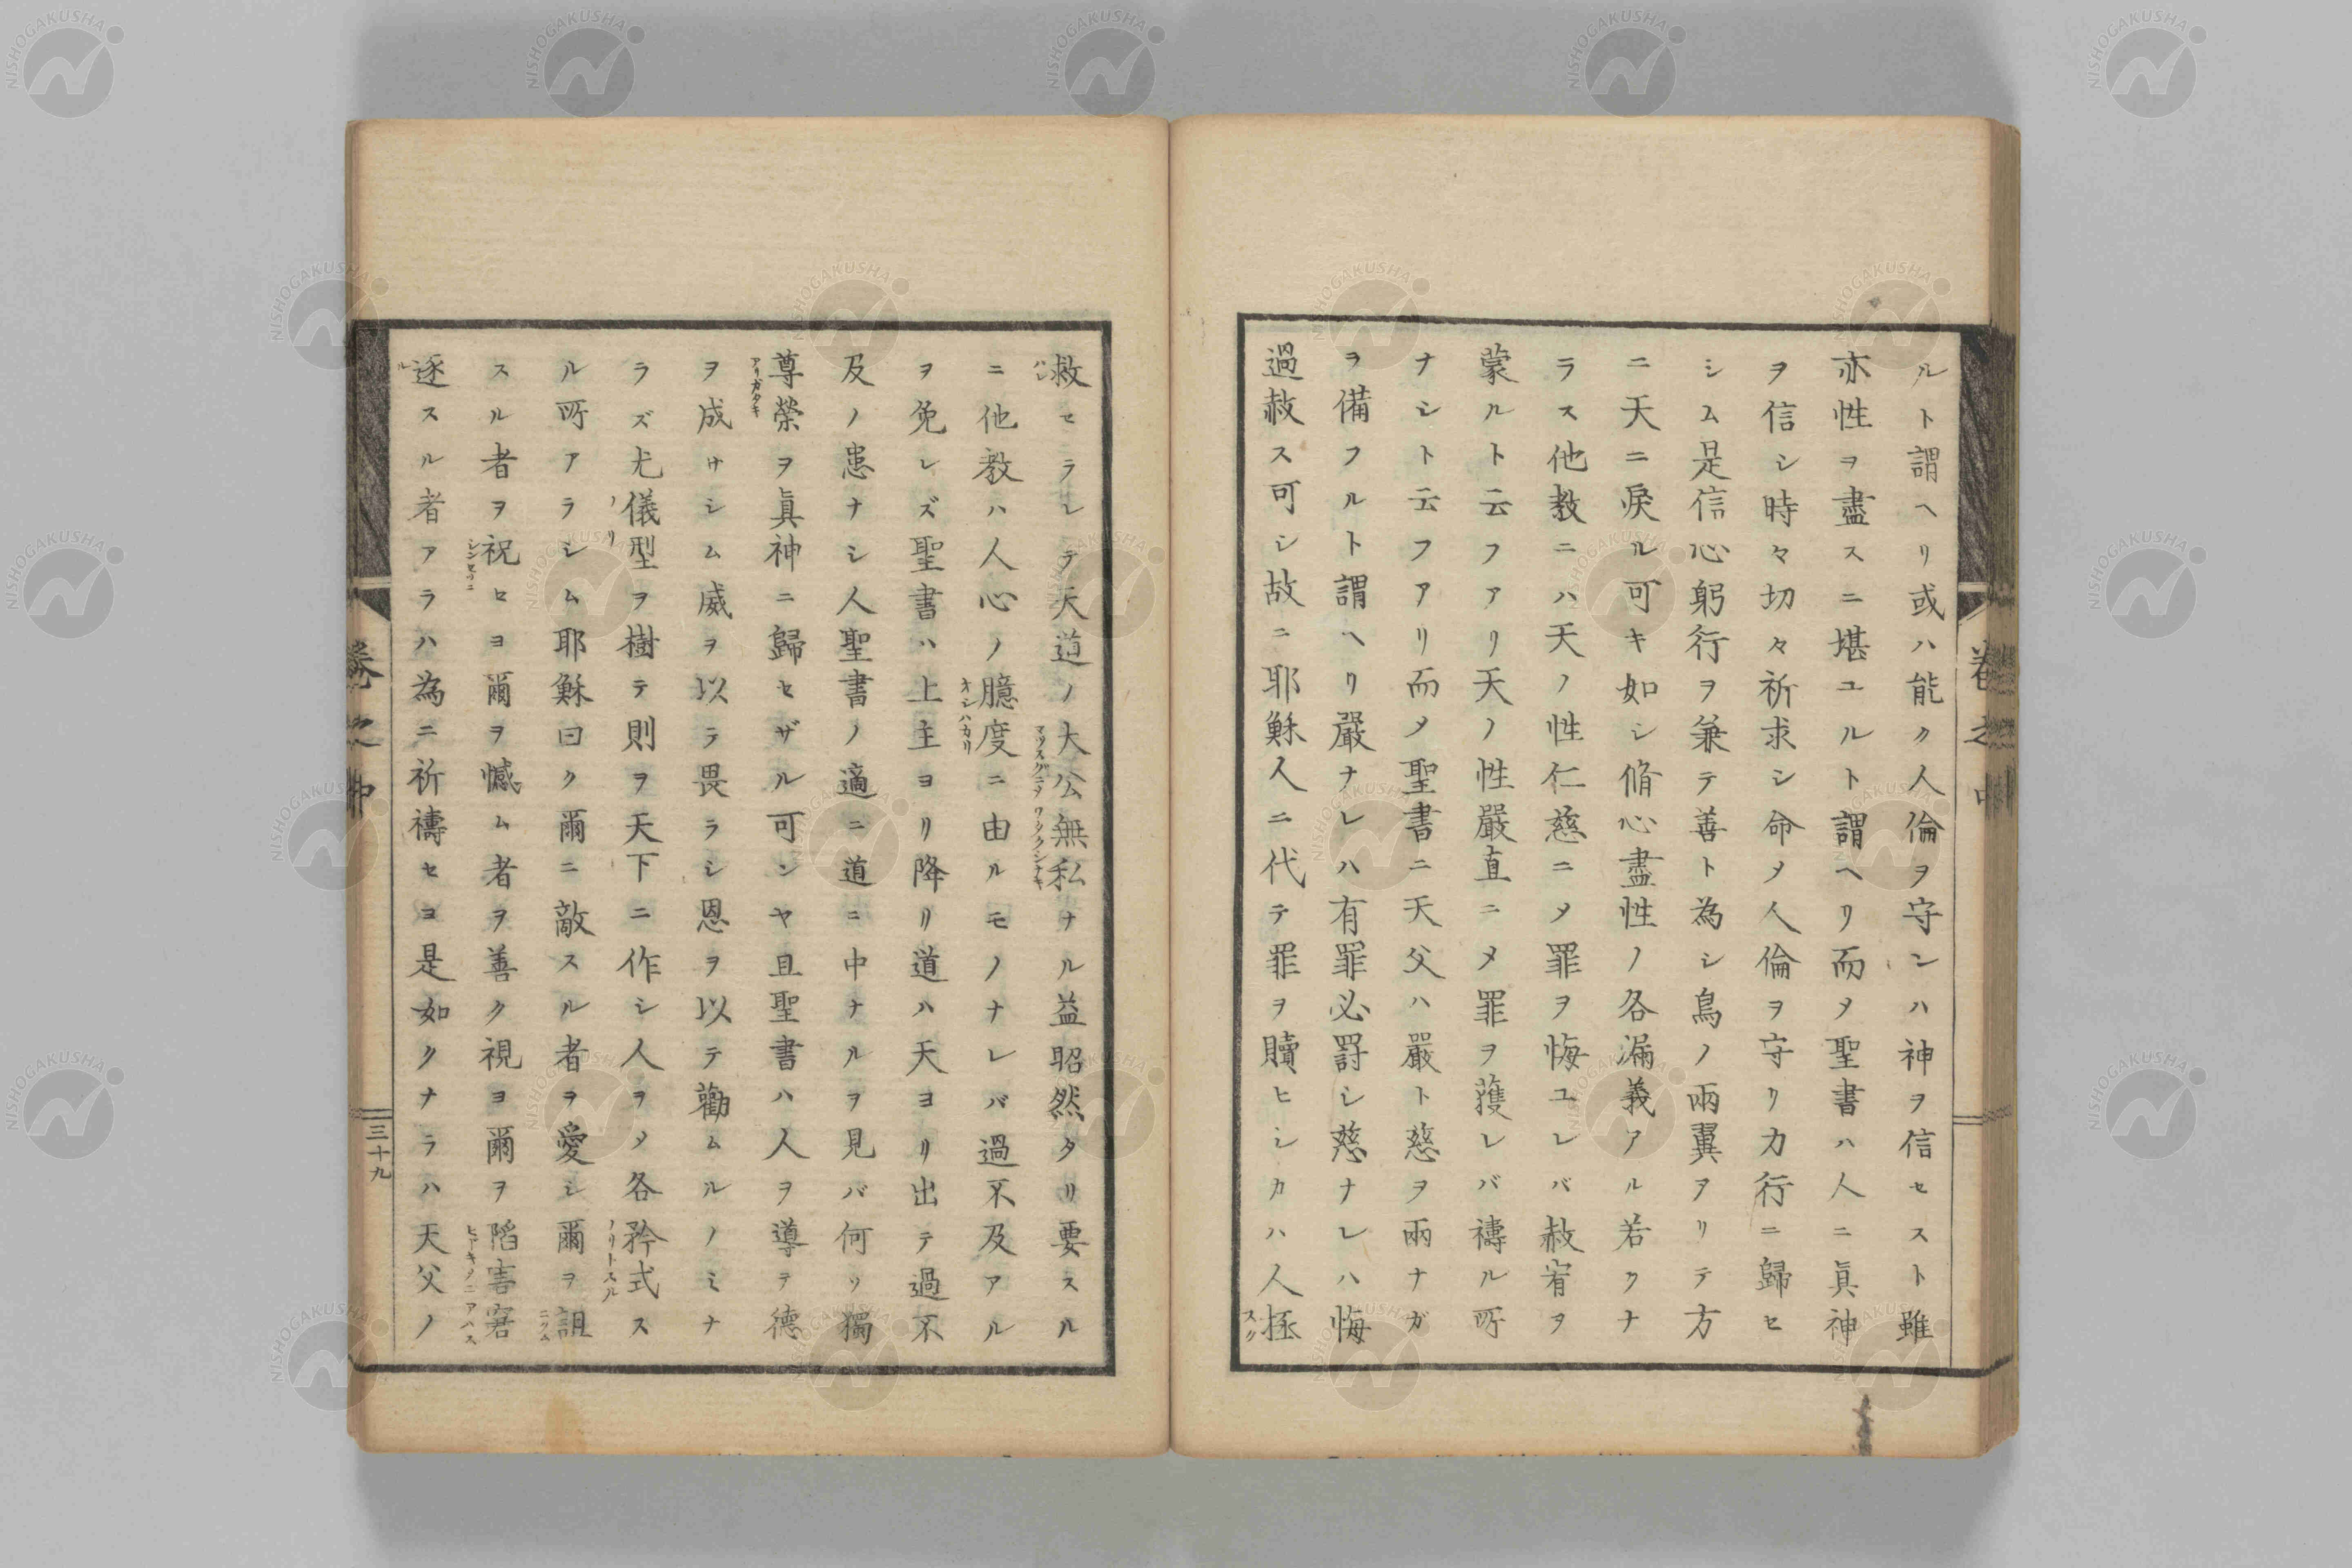 ルト謂ヘリ或ハ能ク人倫ヲ守ンハ神ヲ信セスト雖
亦性ヲ盡スニ堪ユルト謂ヘリ而メ聖書ハ人ニ眞神
ヲ信シ時々切々祈求シ命メ人倫ヲ守リ力行ニ歸セ
シム是信心躬行ヲ兼テ善ト為シ鳥ノ兩翼アリテ方
ニ天ニ戾ル可キ如シ脩心盡性ノ各漏義アル若クナ
ラス他教ニハ天ノ性仁慈ニメ罪ヲ悔ユレバ赦宥ヲ
蒙ルト云フアリ天ノ性嚴直ニメ罪ヲ獲レバ禱ル所
ナシト云フアリ而メ聖書ニ天父ハ嚴ト慈ヲ兩ナガ
ラ備フルト謂ヘリ嚴ナレハ有罪必罸シ慈ナレハ悔
過赦ス可シ故ニ耶穌人ニ代テ罪ヲ贖ヒシカハ人拯
スク
卷之中
救セラレテ天道ノ大公無私ナル益昭然タリ要スル
ハレ
マツスグニテワタクシナキ
ニ他教ハ人心ノ臆度ニ由ルモノナレバ過不及アル
オシハカリ
ヲ免レズ聖書ハ上主ヨリ降リ道ハ天ヨリ出テ過不
及ノ患ナシ人聖書ノ適ニ道ニ中ナルヲ見バ何ソ獨
尊榮ヲ眞神ニ歸セザル可ンヤ且聖書ハ人ヲ導テ德
アリガタキ
ヲ成サシム威ヲ以テ畏ラシ恩ヲ以テ勸ムルノミナ
ラズ尤儀型ヲ樹テ則ヲ天下ニ作シ人ヲメ各矜式ス
ノリ
ノリトスル
ル所アラシム耶穌曰ク爾ニ敵スル者ヲ愛シ爾ヲ詛
ニクム
スル者ヲ祝セヨ爾ヲ憾ム者ヲ善ク視ヨ爾ヲ陷害窘
シンセツニ
逐スル者アラハ為ニ祈禱セヨ是如クナラハ天父ノ
ル
卷之中
三十九
NISHOGAKUSHA